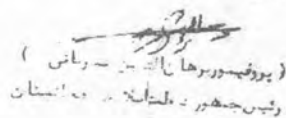 ( پروفیسور برهان الدین ربانی )
رئیس جمهور دولت اسلامی افغانستان